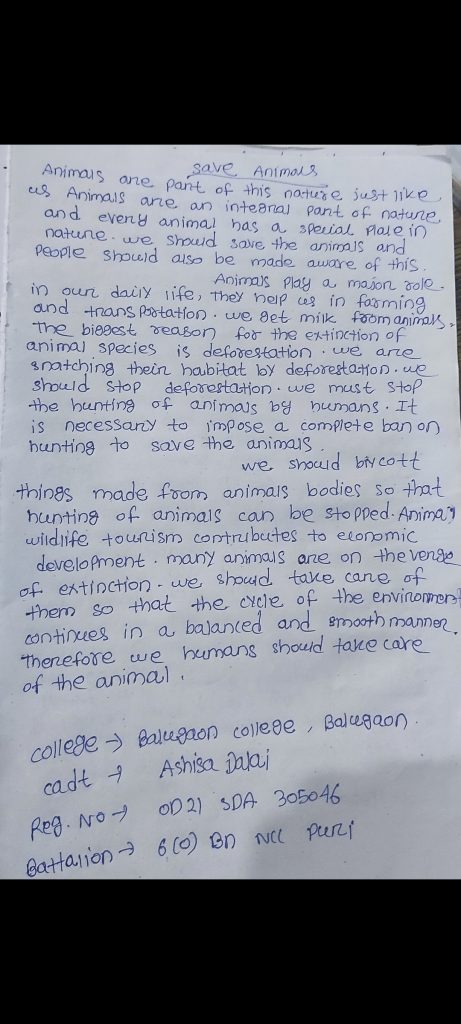 save Animals
Animals are part of this nature just like
us Animals are an integral part of nature
and every animal has a special plale in
nature. we should save the animals and
people should also be made aware of this.
Animals play a major role.
in our daily life, they help us in farming
and transportation. we get milk from animals.
The biggest reason for the extinction of
animal species is deforestation. we are
snatching their habitat by deforestation. we
should stop deforestation. we must stop
the hunting of animals by humans. It
is necessary to impose a complete ban on
hunting to save the animals.
we should biycott
things made from animals bodies so that
hunting of animals can be stopped. Animal
wildlife tourism contributes to economic
development. many animals are on the verge
of extinction. we should take care of
them so that the cycle of the environment
continues in a balanced and smooth manner.
Therefore we humans should take care
of the animal.
college → Balugaon college, Balugaon.
cadt → Ashisa Dalai
Reg. No → OD21 SDA 305046
Battalion → 6(O) BN NCC Puri